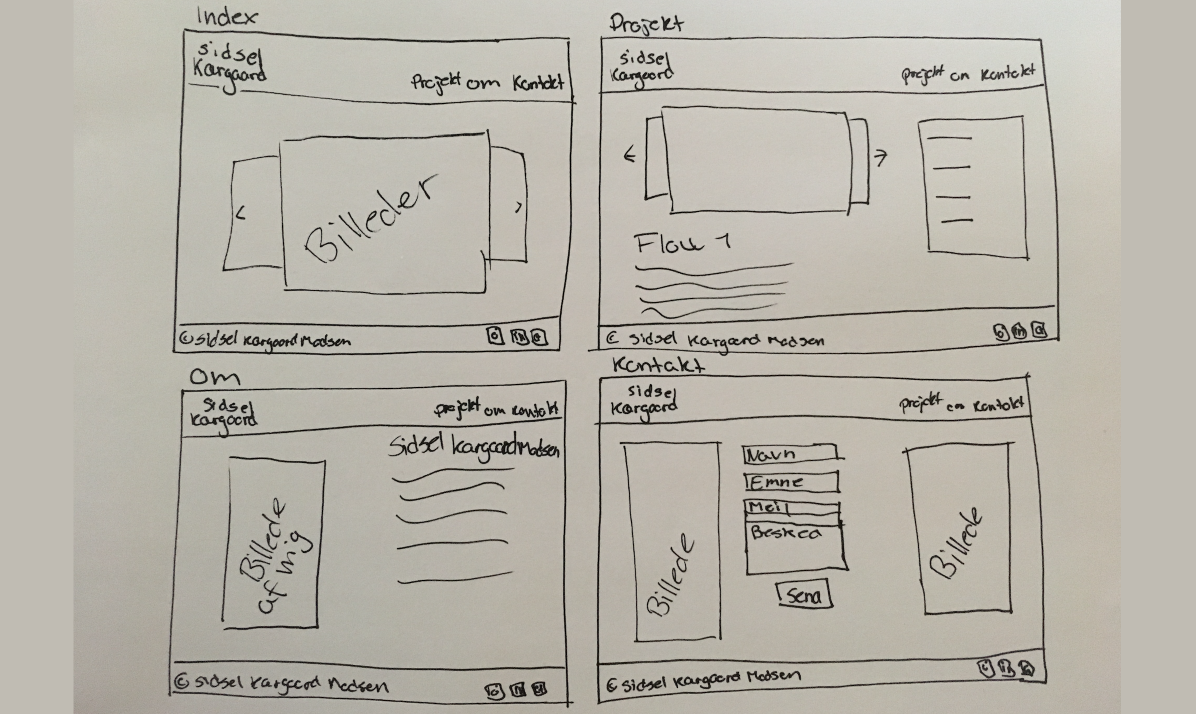 Index
Sidsel
Kargaard
Projekt om Kontakt
Billeder
© Sidsel Kargaard Madsen
Projekt
Sidsel
Kargaard
projekt om Kontakt
Flow 1
© Sidsel Kargaard Madsen
Om
Sidsel
Kargaard
projekt om Kontakt
Billede
af mig
Sidsel Kargaard Madsen
© Sidsel Kargaard Madsen
Kontakt
Sidsel
Kargaard
projekt om Kontakt
Billede
Navn
Emne
Meil
Besked
Send
Billede
© Sidsel Kargaard Madsen